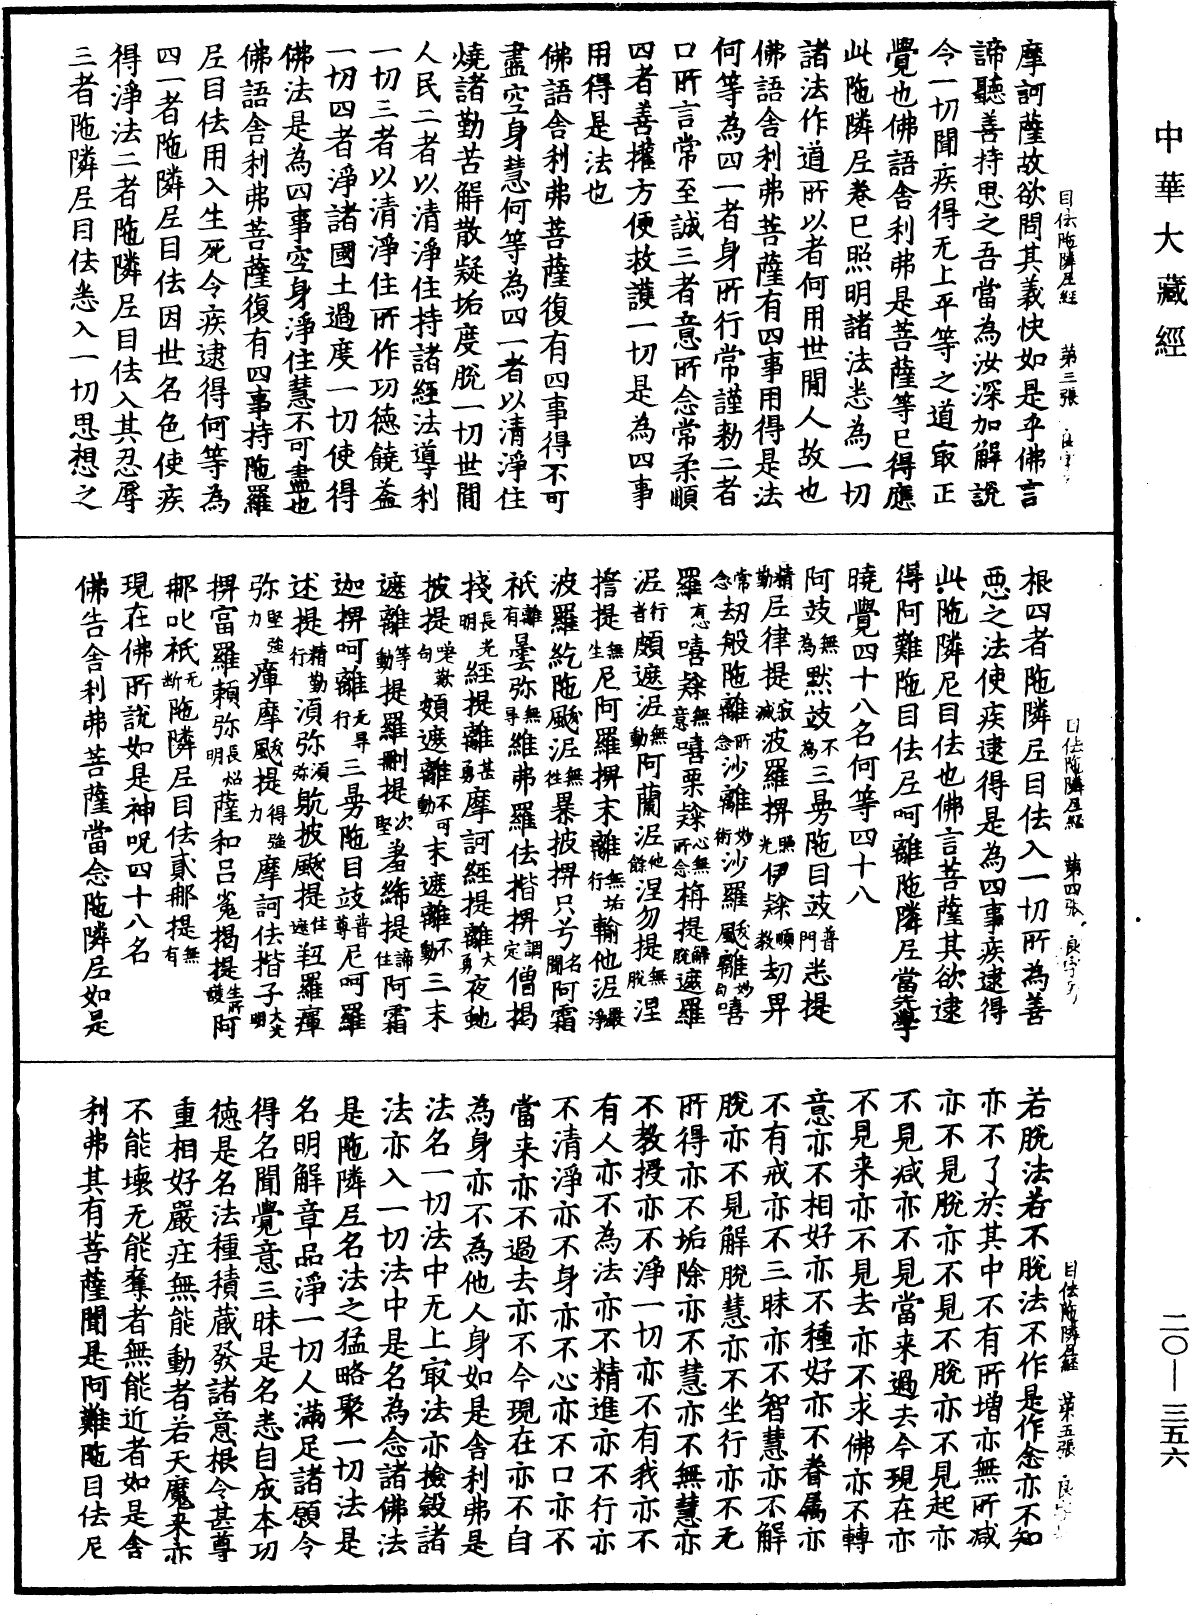 中華大藏經
目佉陁隣𡰱經　第三張　良字号
摩訶薩故欲問其義快如是乎佛言
諦聽善持思之吾當為汝深加解說
令一切聞疾得无上平等之道㝡正
覺也佛語舍利弗是菩薩等已得應
此陁隣𡰱卷已照明諸法悉為一切
諸法作道所以者何用世閒人故也
佛語舍利弗菩薩有四事用得是法
何等為四一者身所行常謹勑二者
口所言常至誠三者意所念常柔順
四者善權方便救護一切是為四事
用得是法也
佛語舍利弗菩薩復有四事得不可
盡空身慧何等為四一者以清淨住
燒諸勤苦解散疑垢度脫一切世閒
人民二者以清淨住持諸經法導利
一切三者以清淨住所作功德饒益
一切四者淨諸國土過度一切使得
佛法是為四事空身淨住慧不可盡也
佛語舍利弗菩薩復有四事持陁羅
𡰱目佉用入生死令疾逮得何等為
四一者陁隣𡰱目佉因世名色使疾
得淨法二者陁隣𡰱目佉入其忍辱
三者陁隣𡰱目佉悉入一切思想之
目佉陁隣𡰱經　第四張　良字号
根四者陁隣𡰱目佉入一切所為善
惡之法使疾逮得是為四事疾逮得
此陁隣尼目佉也佛言菩薩其欲逮
得阿難陁目佉𡰱呵離陁隣𡰱當先學
曉覺四十八名何等四十八
阿𢻃無為默𢻃不為三曷陁目𢻃普門悉提
精勤𡰱律提寂滅波羅揥照光伊𨽻順教刧昇
常念刧般陁離所念沙離妙術沙羅颰離妙句嘻
羅有心嘻𨽻無意嘻栗𨽻心無所念栴提解脫遮羅
泥行者頗遮泥無動阿蘭泥他餘涅勿提無脫涅
擔提無生尼阿羅揥末離無垢行輸他泥嚴淨
波羅紇陁颰泥無性暴披揥只兮名聞阿霜
祇離有曇弥無尋維弗羅佉揩揥調定僧揭
㧗長光明經提離甚勇摩訶經提離大勇夜虵
披提嗟歎句頗遮離不可動末遮離不動三末
遮離等動提羅刪提次堅羞締提諦住阿霜
迦揥呵離无尋行三曷陁目𢻃普尊尼呵羅
述提精勤行湏弥湏弥㼚披颰提住遠䩭羅癉
弥堅強力癉摩颰提得強力摩訶佉揩子大光明
揥富羅頼弥長炤明薩和呂嵬揭提生所護阿
那叱祇无断陁隣𡰱目佉貳那提無有
現在佛所說如是神呪四十八名
佛告舍利弗菩薩當念陁隣𡰱如是
目佉陁隣𡰱經　第五張　良字号
若脫法若不脫法不作是作念亦不知
亦不了於其中不有所增亦無所減
亦不見脫亦不見不脫亦不見起亦
不見減亦不見當来過去今現在亦
不見来亦不見去亦不求佛亦不轉
意亦不相好亦不種好亦不眷屬亦
不有戒亦不三昧亦不智慧亦不解
脫亦不見解脫慧亦不坐行亦不无
所得亦不垢除亦不慧亦不無慧亦
不教授亦不淨一切亦不有我亦不
有人亦不為法亦不精進亦不行亦
不清淨亦不身亦不心亦不口亦不
當来亦不過去亦不今現在亦不自
為身亦不為他人身如是舍利弗是
法名一切法中无上㝡法亦撿斂諸
法亦入一切法中是名為念諸佛法
是陁隣𡰱名法之猛略聚一切法是
名明解章品淨一切人滿足諸願令
得名聞覺意三昧是名悉自成本功
德是名法種積蔵發諸意根令甚尊
重相好嚴庄無能動者若天魔来亦
不能壞无能奪者無能近者如是舍
利弗其有菩薩聞是阿難陁目佉尼
二〇—三五六